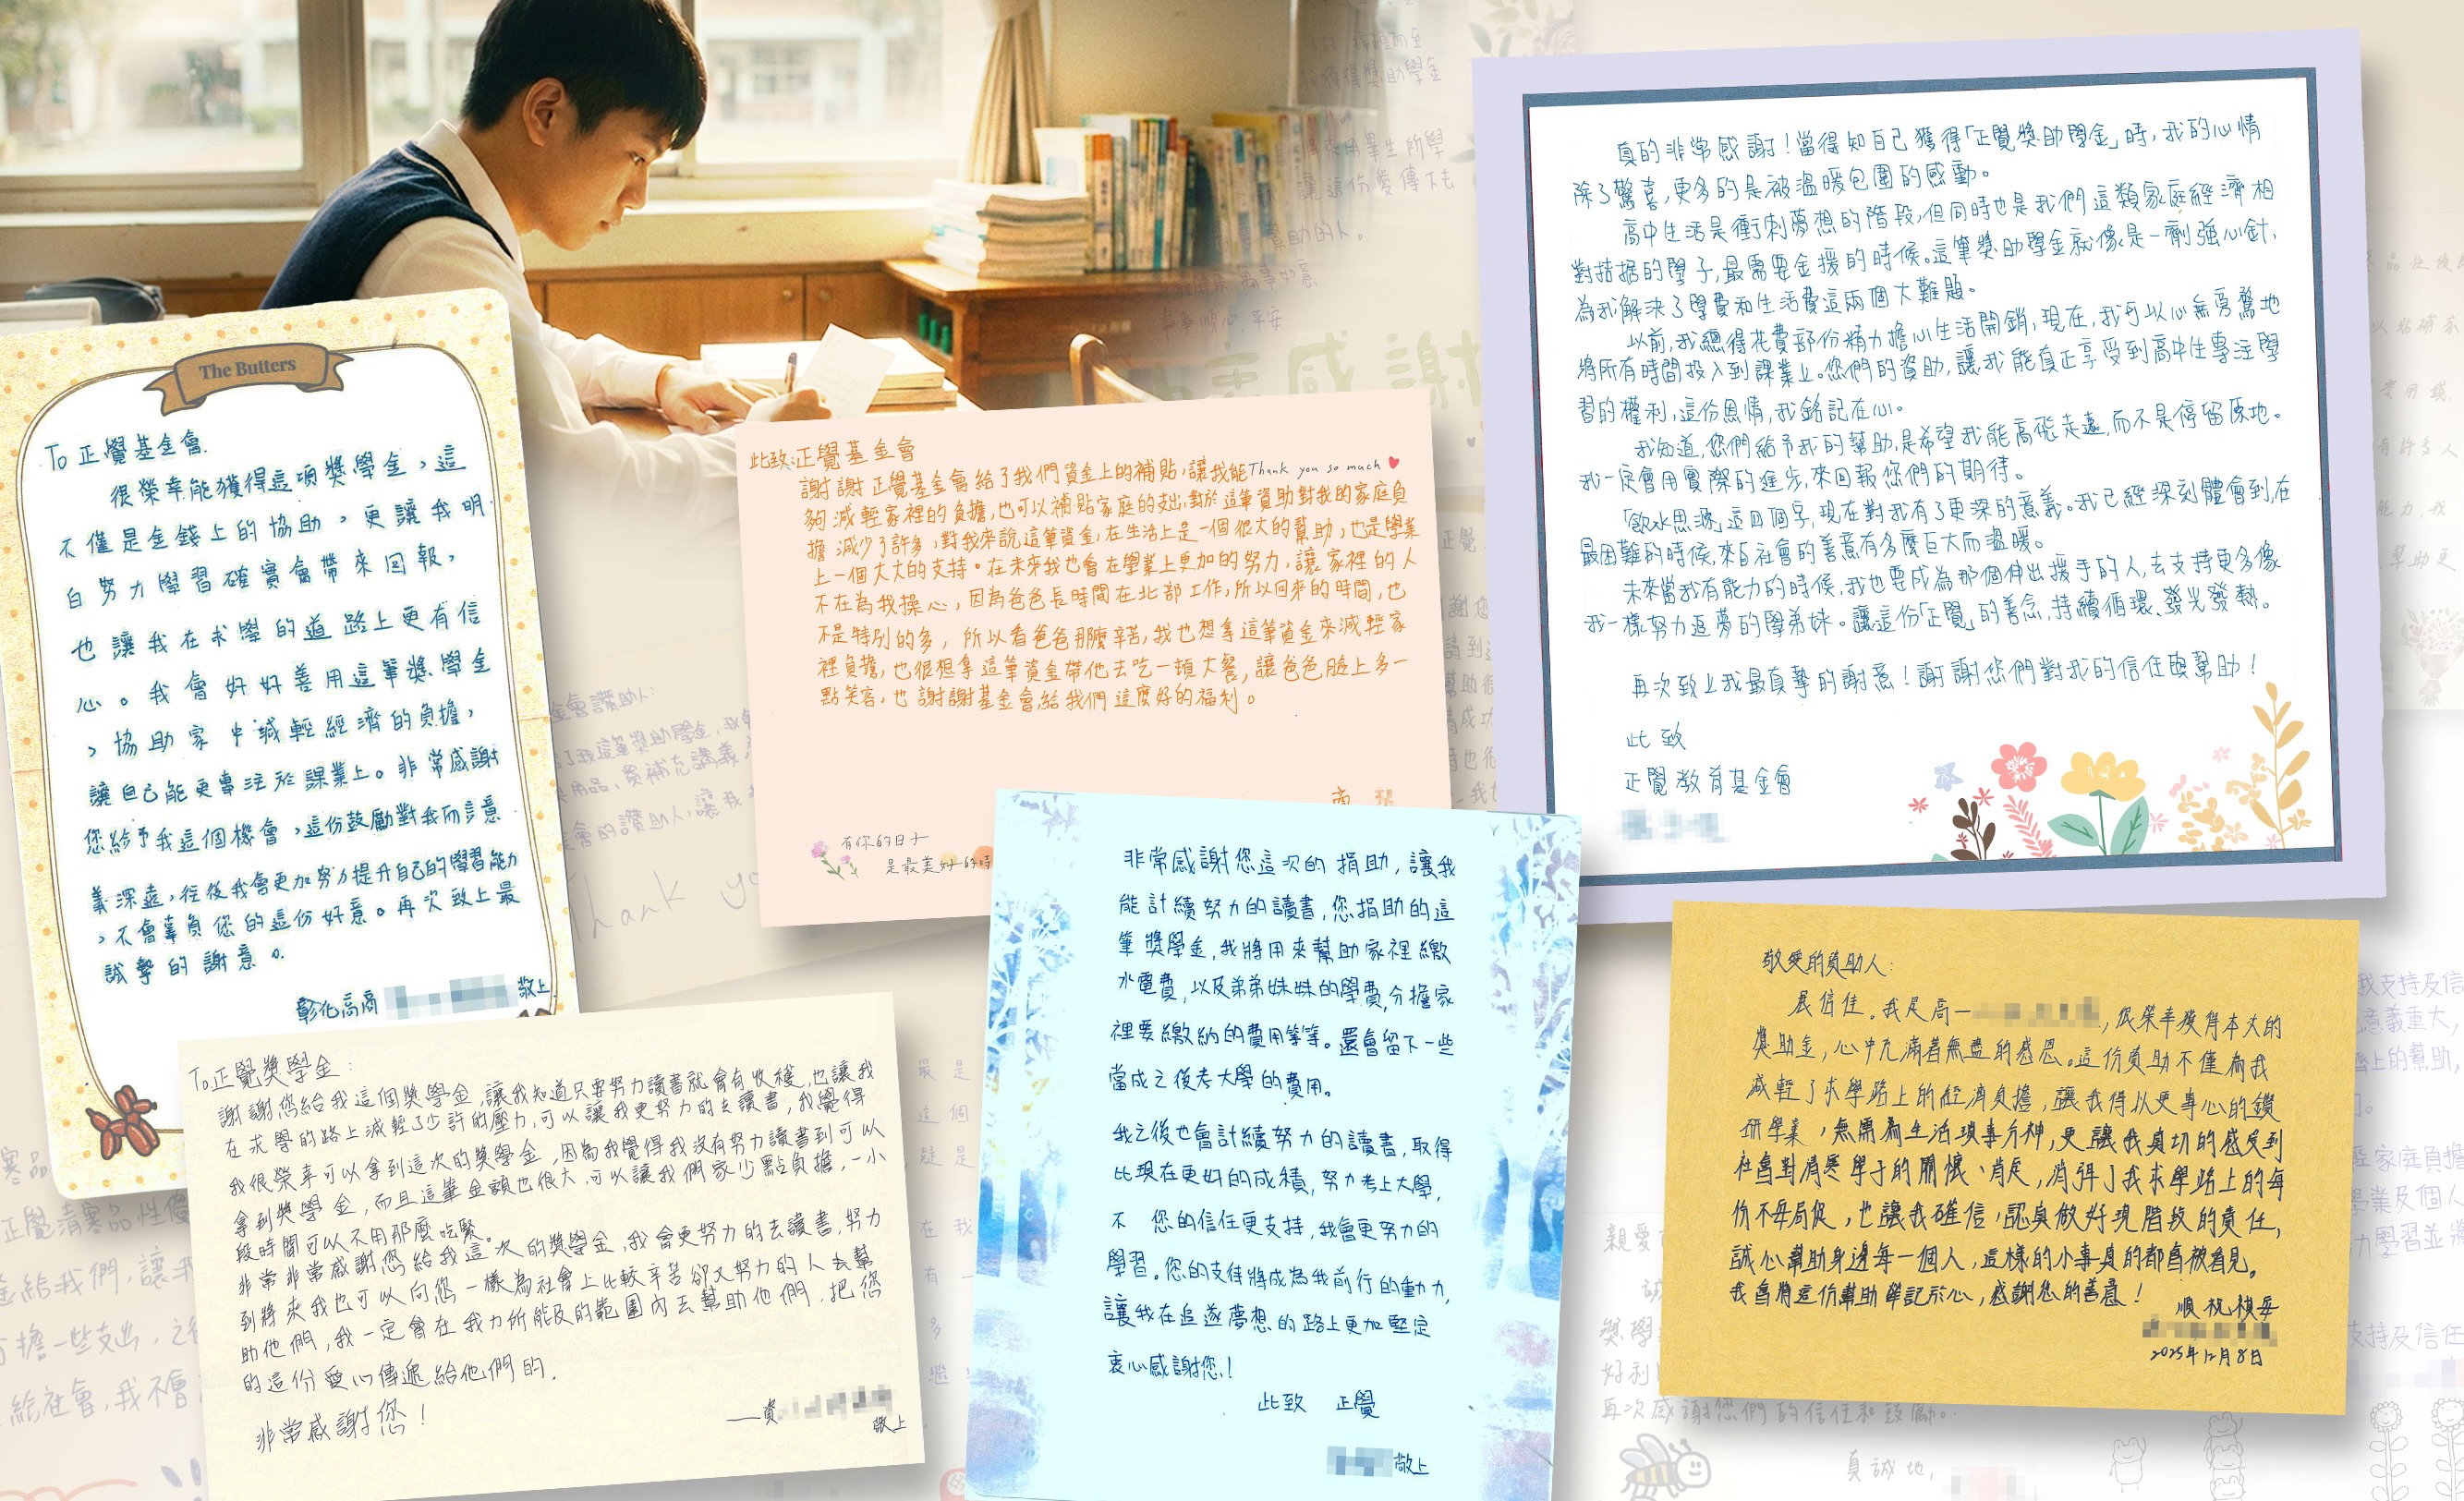 The Butters
To 正覺基金會.
很榮幸能獲得這項獎學金，這
不僅是金錢上的協助，更讓我明
白努力學習確實會帶來回報，
也讓我在求學的道路上更有信
心。我會好好善用這筆獎學金
，協助家中減輕經濟的負擔，
讓自己能更專注於課業上。非常感謝
您給予我這個機會，這份鼓勵對我而言意
義深遠，往後我會更加努力提升自己的學習能力
，不會辜負您的這份好意。再次致上最
誠摯的謝意。
彰化高商 敬上
此致:正覺基金會
Thank you so much
謝謝正覺基金會給了我們資金上的補貼，讓我能
夠減輕家裡的負擔，也可以補貼家庭的支出，對於這筆資助對我的家庭負
擔減少了許多，對我來說這筆資金，在生活上是一個很大的幫助，也是學業
上一個大大的支持。在未來我也會在學業上更加的努力，讓家裡的人
不在為我操心，因為爸爸長時間在北部工作，所以回來的時間，也
不是特別的多，所以看爸爸那麼辛苦，我也想拿這筆資金來減輕家
裡負擔，也很想拿這筆資金帶他去吃一頓大餐，讓爸爸臉上多一
點笑容，也謝謝基金會，給我們這麼好的福利。
有你的日子
是最美好的時
真的非常感謝！當得知自己獲得「正覺獎助學金」時，我的心情
除了驚喜，更多的是被溫暖包圍的感動。
高中生活是衝刺夢想的階段，但同時也是我們這類家庭經濟相
對拮据的學子，最需要金援的時候。這筆獎助學金就像是一劑強心針，
為我解決了學費和生活費這兩個大難題。
以前，我總得花費部份精力擔心生活開銷，現在，我可以心無旁騖地
將所有時間投入到課業上。您們的資助，讓我能真正享受到高中生專注學
習的權利，這份恩情，我銘記在心。
我知道，您們給予我的幫助，是希望我能高飛走遠，而不是停留原地。
我一定會用實際的進步，來回報您們的期待。
「飲水思源」這四個字，現在對我有了更深的意義。我已經深刻體會到，在
最困難的時候，來自社會的善意有多麼巨大而溫暖。
未來當我有能力的時候，我也要成為那個伸出援手的人，去支持更多像
我一樣努力追夢的學弟妹。讓這份「正覺」的善念，持續循環、發光發熱。
再次致上我最真摯的謝意！謝謝您們對我的信任與幫助！
此致
正覺教育基金會
To.正覺獎學金：
謝謝您給我這個獎學金，讓我知道只要努力讀書就會有收穫，也讓我
在求學的路上減輕了少許的壓力，可以讓我更努力的去讀書，我覺得
我很榮幸可以拿到這次的獎學金，因為我覺得我沒有努力讀書到可以
拿到獎學金，而且這筆金額也很大，可以讓我們家少點負擔，一小
段時間可以不用那麼吃緊。
非常非常感謝您給我這次的獎學金，我會更努力的去讀書，努力
到將來我也可以向您一樣為社會上比較辛苦卻又努力的人去幫
助他們，我一定會在我力所能及的範圍內去幫助他們，把您
的這份愛心傳遞給他們的.
非常感謝您！
—資 敬上
非常感謝您這次的捐助，讓我
能計續努力的讀書，您捐助的這
筆獎學金，我將用來幫助家裡繳
水電費，以及弟弟妹妹的學費，分擔家
裡要繳納的費用等等。還會留下一些
當成之後考大學的費用。
我之後也會計續努力的讀書，取得
比現在更好的成積，努力考上大學，
不 您的信任更支持，我會更努力的
學習。您的支待將成為我前行的動力，
讓我在追逐夢想的路上更加堅定
衷心感謝您！
此致 正覺
敬上
敬愛的資助人：
展信佳。我是高一 ，很榮幸獲得本次的
獎助金，心中充滿著無盡的感恩。這份資助不僅為我
減輕了求學路上的經濟負擔，讓我得以更專心的鑽
研學業，無需為生活瑣事分神，更讓我真切的感受到
社會對清寒學子的關懷、肯定，消弭了我求學路上的每
份不安侷促，也讓我確信，認真做好現階段的責任，
誠心幫助身邊每一個人，這樣的小事真的都會被看見。
我會將這份幫助牢記於心，感謝您的善意！
順祝 祺安
2025年12月8日
再次感謝您們的信任和鼓勵。
真誠地，